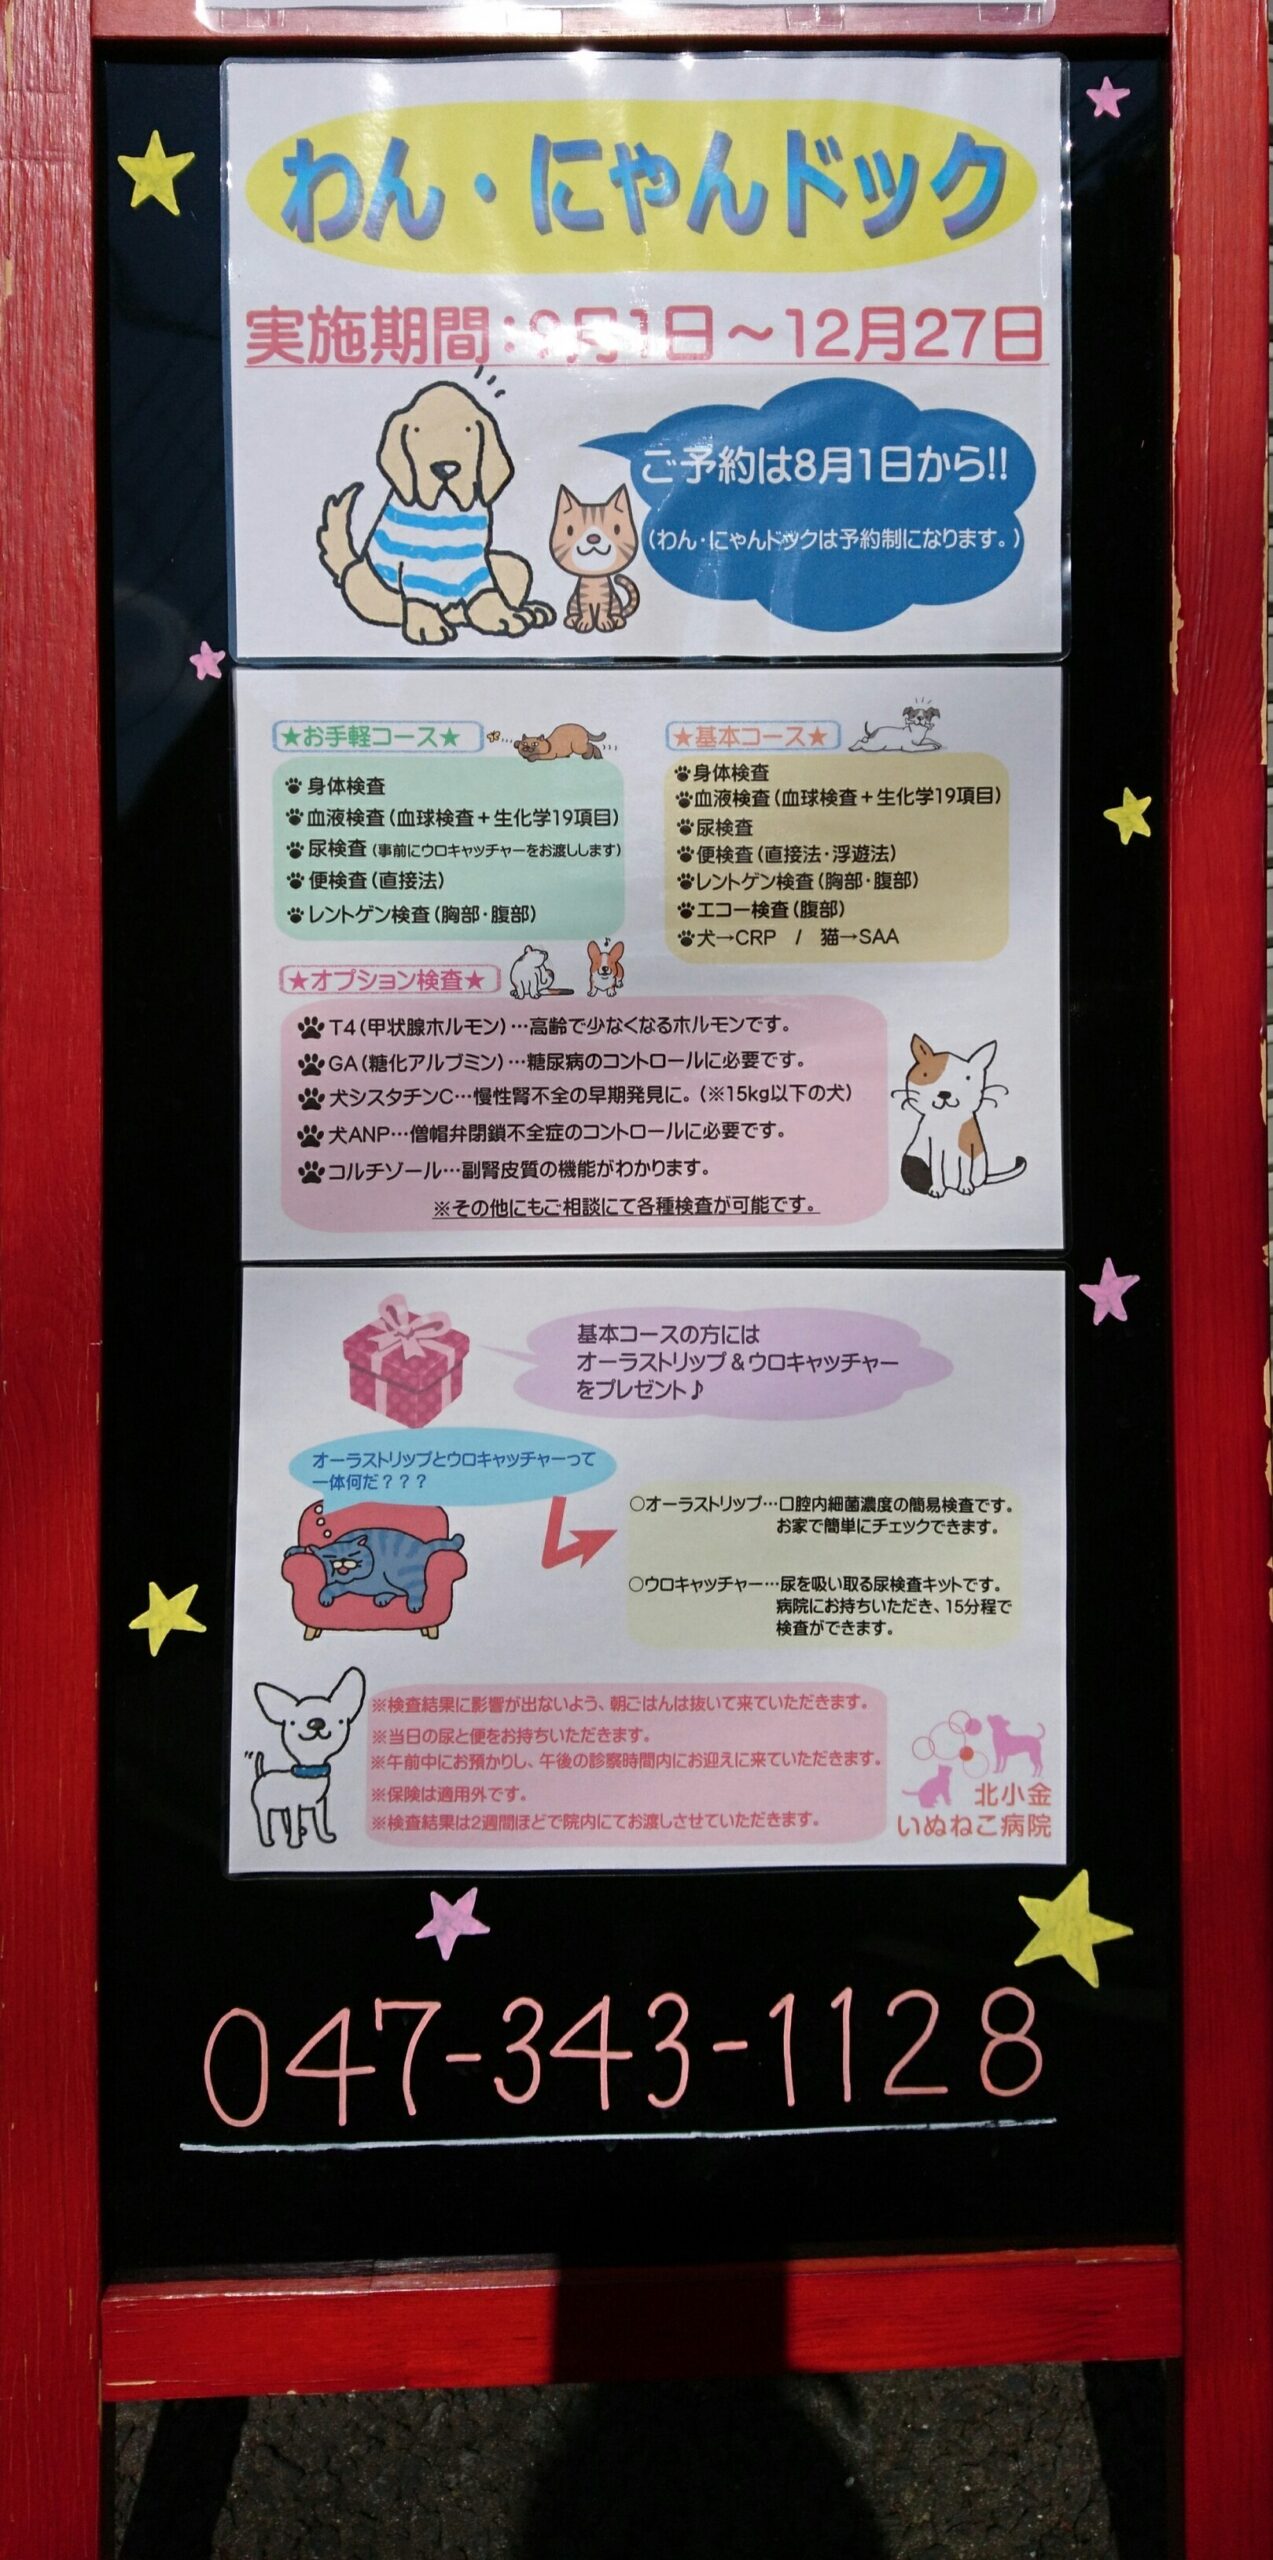 わん・にゃんドック
実施期間：9月1日～12月27日
ご予約は8月1日から!!
（わん・にゃんドックは予約制になります。）
★お手軽コース★
身体検査
血液検査（血球検査＋生化学19項目）
尿検査（事前にウロキャッチャーをお渡しします）
便検査（直接法）
レントゲン検査（胸部・腹部）
★基本コース★
身体検査
血液検査（血球検査＋生化学19項目）
尿検査
便検査（直接法・浮遊法）
レントゲン検査（胸部・腹部）
エコー検査（腹部）
犬→CRP / 猫→SAA
★オプション検査★
T4（甲状腺ホルモン）…高齢で少なくなるホルモンです。
GA（糖化アルブミン）…糖尿病のコントロールに必要です。
犬シスタチンC…慢性腎不全の早期発見に。（※15kg以下の犬）
犬ANP…僧帽弁閉鎖不全症のコントロールに必要です。
コルチゾール…副腎皮質の機能がわかります。
※その他にもご相談にて各種検査が可能です。
基本コースの方には
オーラストリップ＆ウロキャッチャー
をプレゼント♪
オーラストリップとウロキャッチャーって
一体何だ？？？
○オーラストリップ…口腔内細菌濃度の簡易検査です。
お家で簡単にチェックできます。
○ウロキャッチャー…尿を吸い取る尿検査キットです。
病院にお持ちいただき、15分程で
検査ができます。
※検査結果に影響が出ないよう、朝ごはんは抜いて来ていただきます。
※当日の尿と便をお持ちいただきます。
※午前中にお預かりし、午後の診察時間内にお迎えに来ていただきます。
※保険は適用外です。
※検査結果は2週間ほどで院内にてお渡しさせていただきます。
北小金
いぬねこ病院
047-343-1128